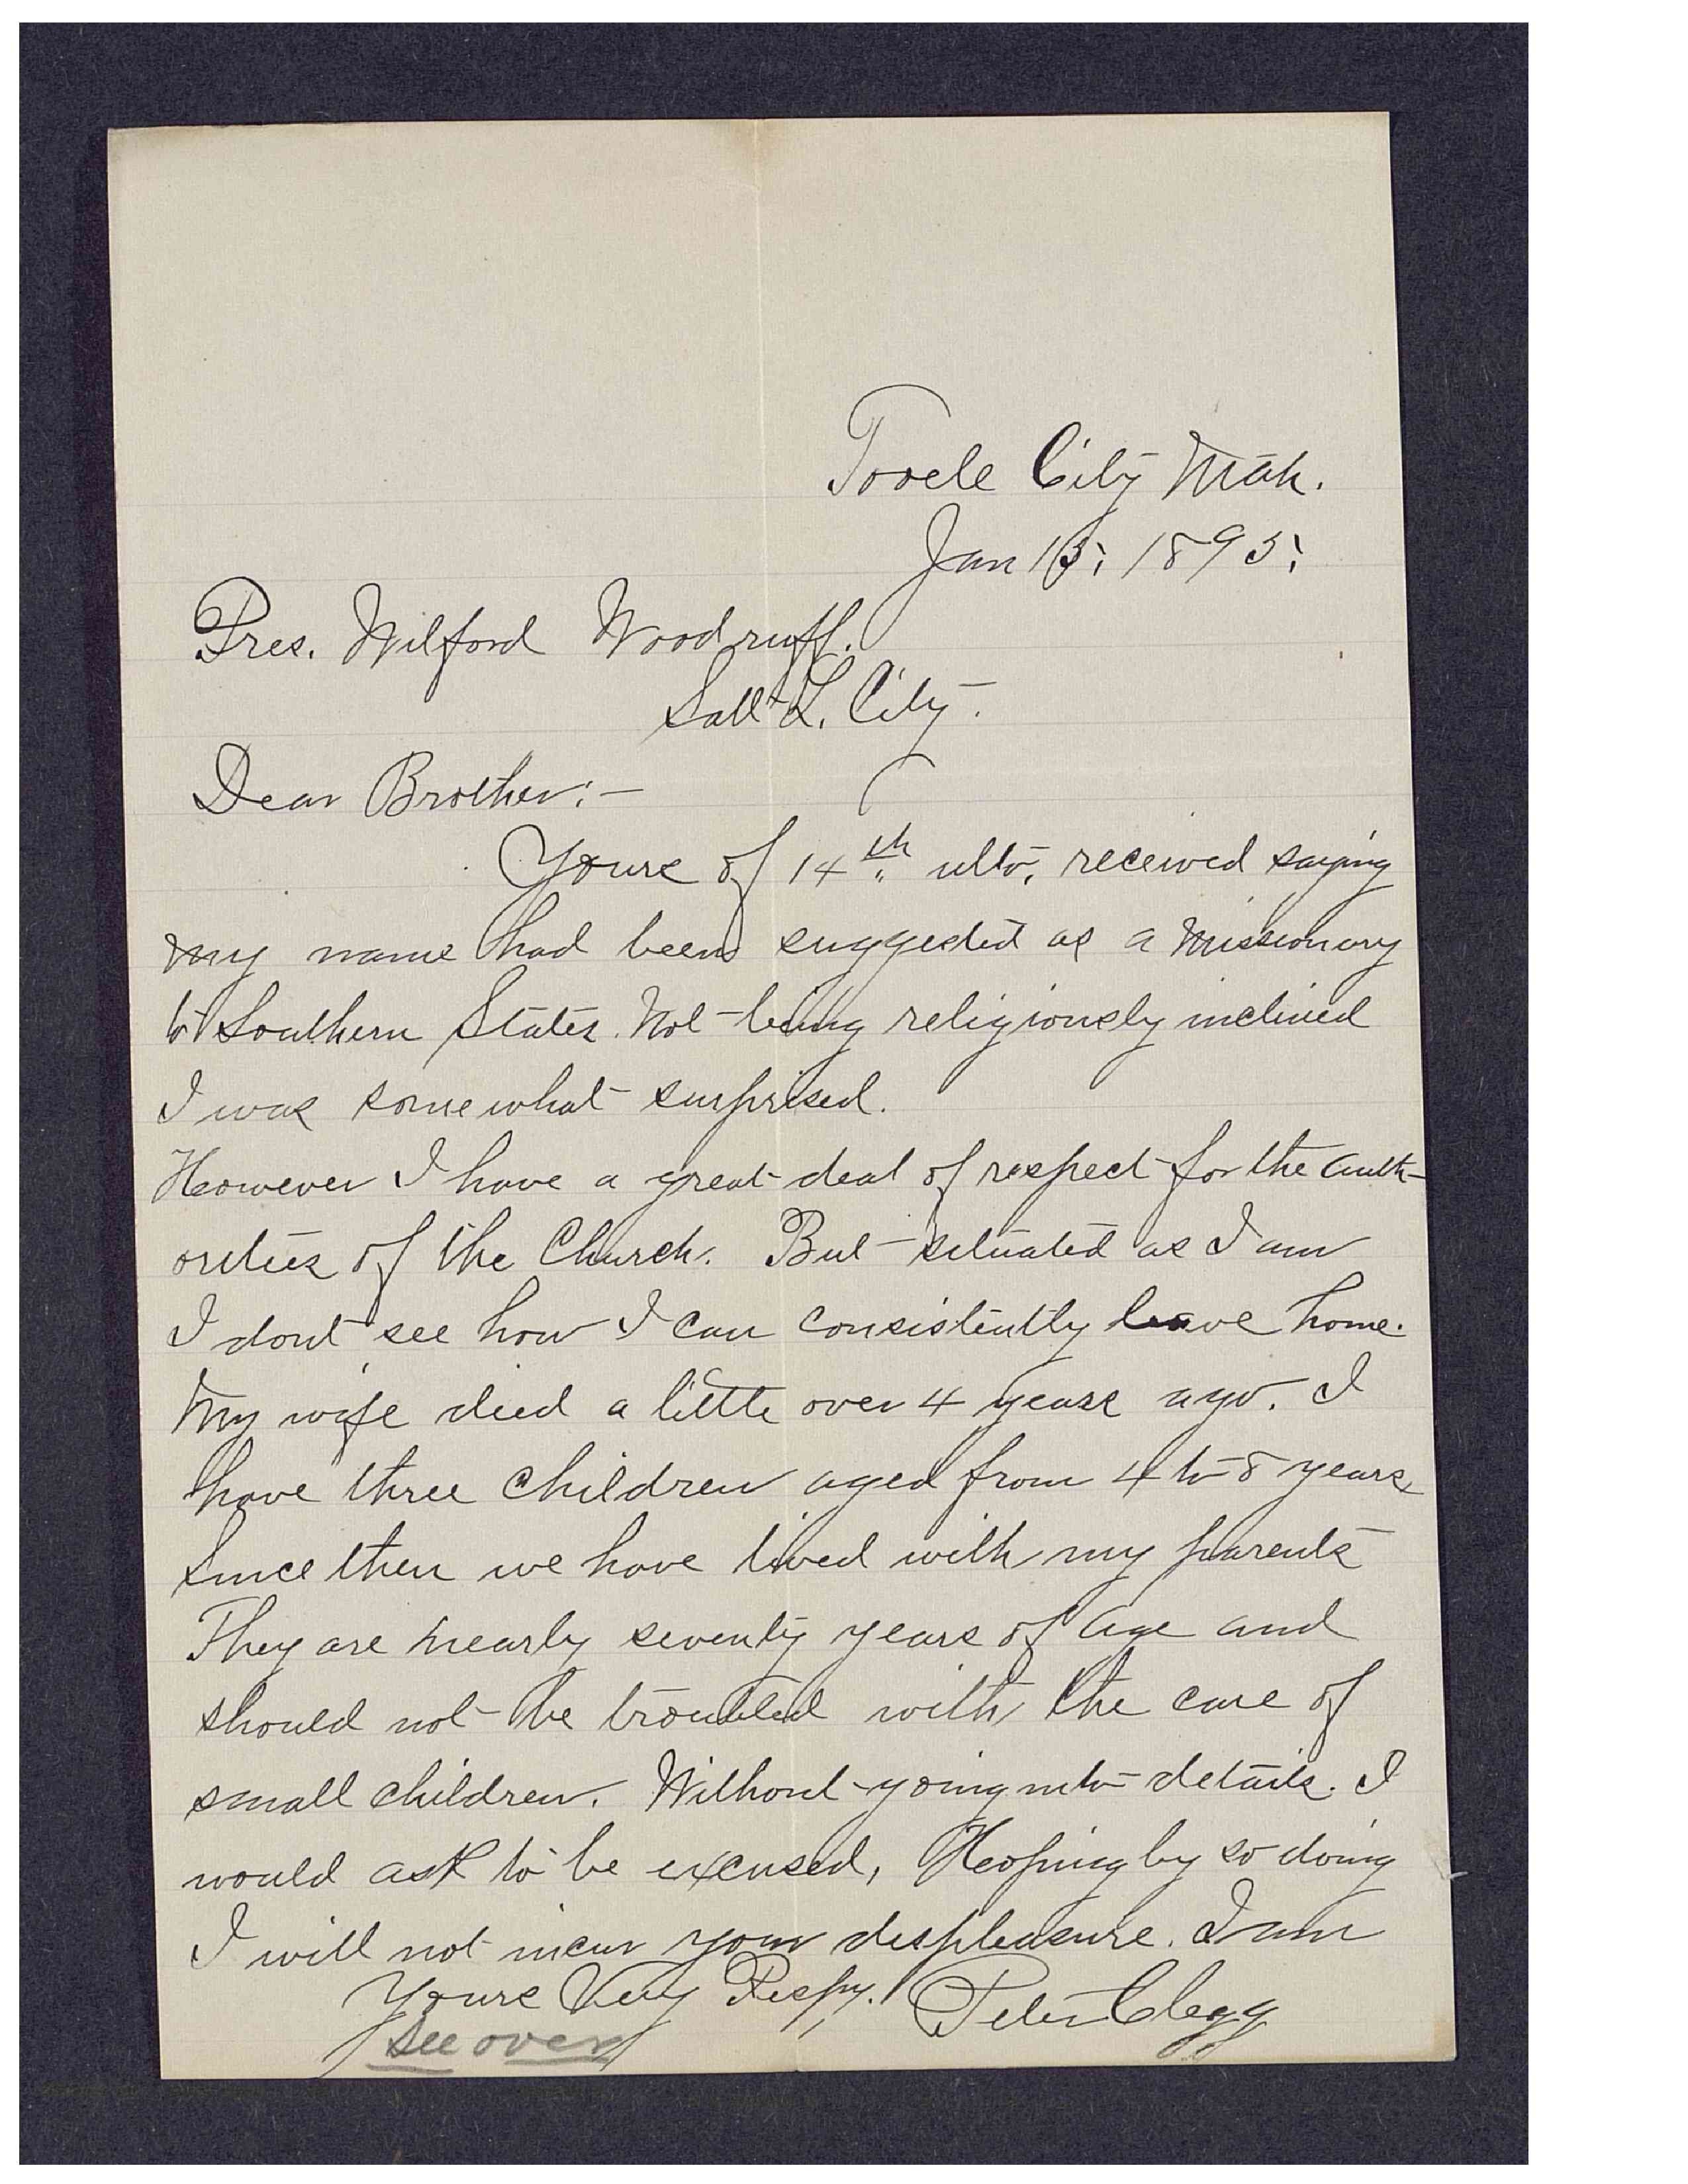 Tooele City Utah.
Jan 15, 1895,
Pres. Wilford Woodruff.
Salt L. City.
Dear Brother:—
Yours of 14th ulto, received saying
my name had been suggested as a Missionary
to Southern States. Not being religiously inclined
I was somewhat surprised.
However I have a great deal of respect for the auth-
orities of the Church. But situated as I am
I dont see how I can consistently leave home.
My wife died a little over 4 years ago. I
have three children aged from 4 to 8 years
Since then we have lived with my parents
They are nearly seventy years of age and
should not be troubled with the care of
small children. Without going into details. I
would ask to be excused, Hoping by so doing
I will not incur your displeasure. I am
Yours Very Respy. Peter Clegg
See over